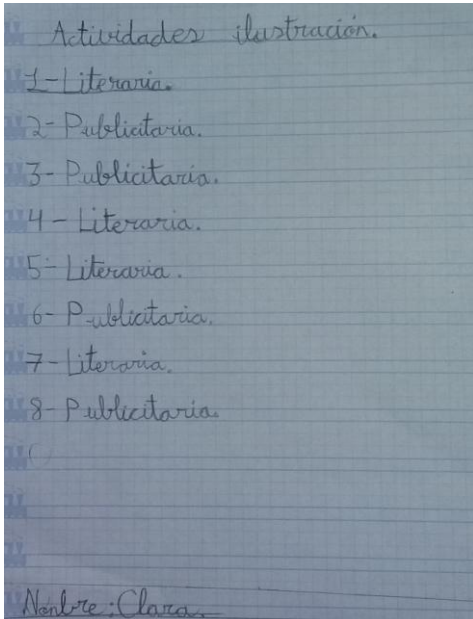 Actividades ilustración.
1-Literaria.
2-Publicitaria.
3-Publicitaria.
4-Literaria.
5-Literaria.
6-Publicitaria.
7-Literaria.
8-Publicitaria.
Nonbre: Clara.